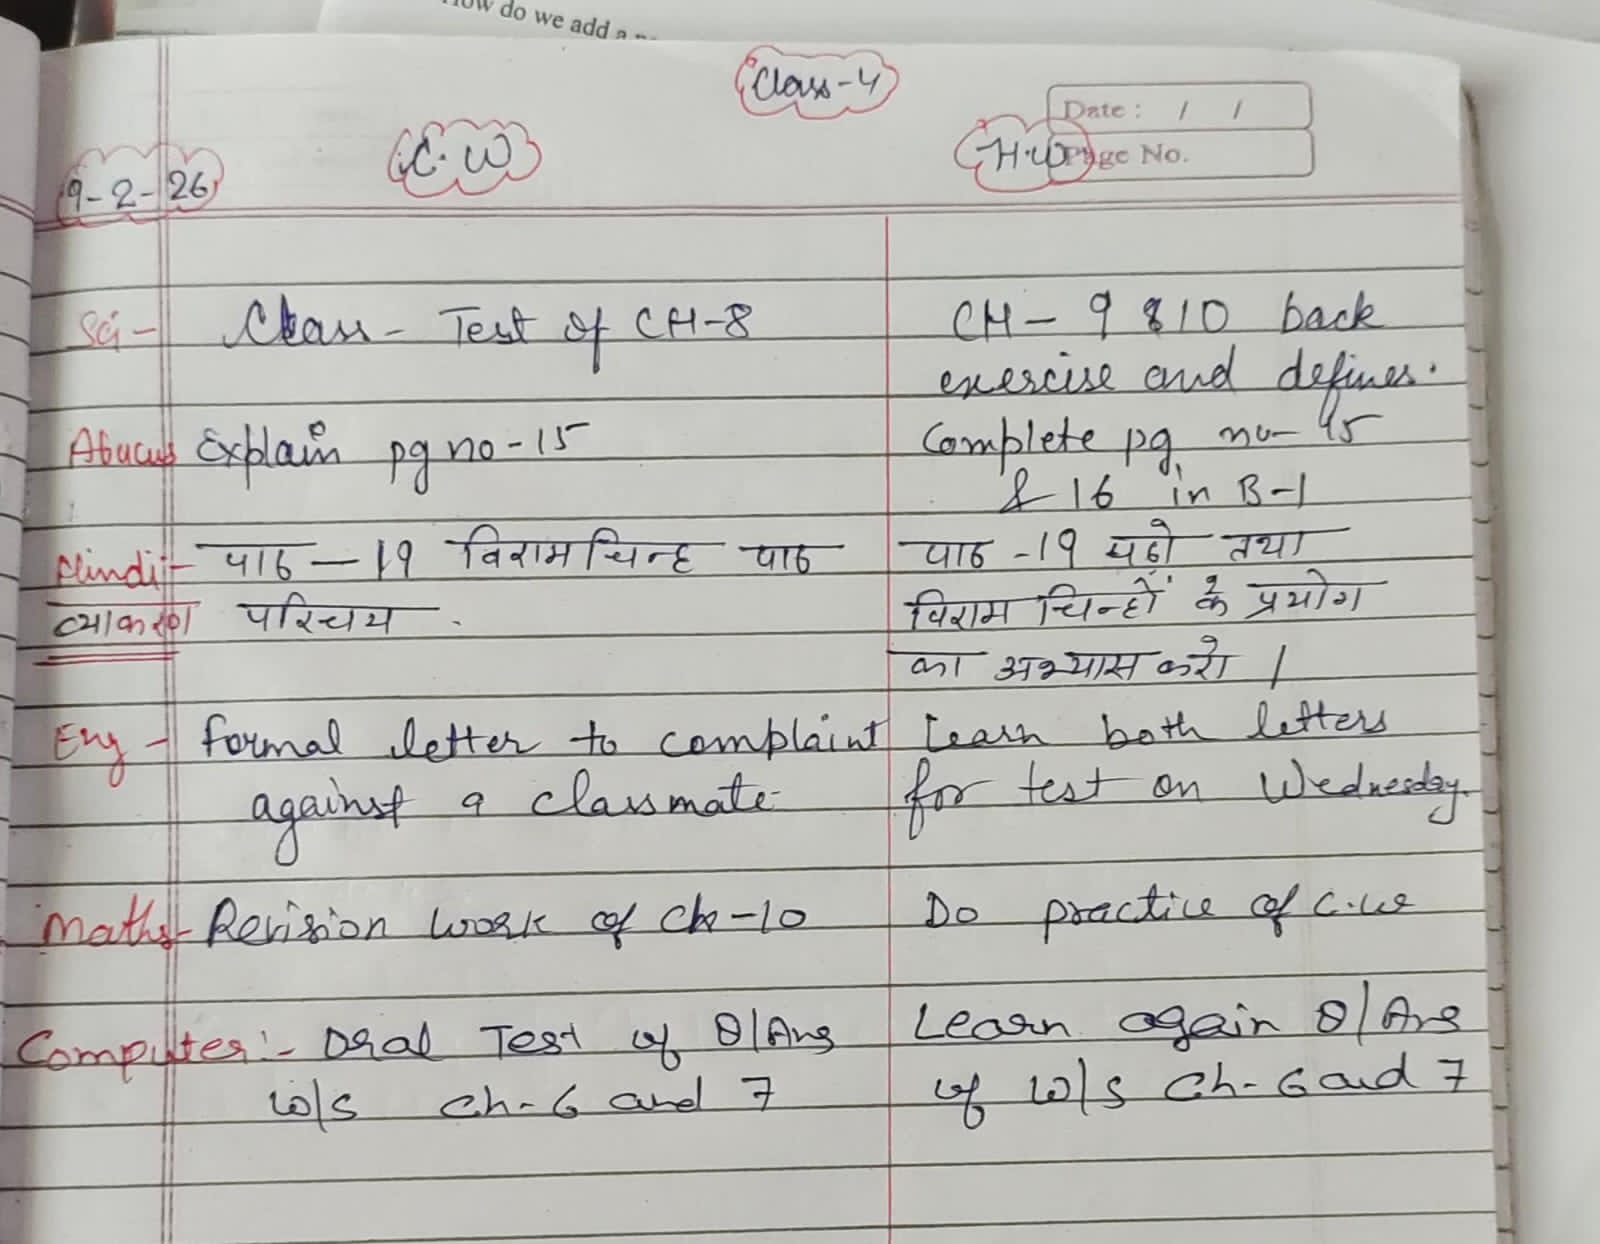 How do we add a
Class-4
Date: / /
C.W
H.W Page No.
9-2-26
Sci- Class- Test of CH-8
CH- 9 & 10 back
exercise and defines.
Abucus Explain pg no-15
Complete pg no-
& 16 in B-1
Hindi:- पाठ-19 विराम चिन्ह पाठ
व्याकरण परिचय .
पाठ -19 पढ़ो तथा
विराम चिन्हों के प्रयोग
का अभ्यास करो ।
Eng- formal letter to complaint
against a classmate-
Learn both letters
for test on Wednesday.
Maths- Revision work of Ch-10
Do practice of C.W
Computer:- Oral Test of Q/Ans
W/S Ch-6 and 7
Learn again Q/Ans
of W/S Ch-6 and 7